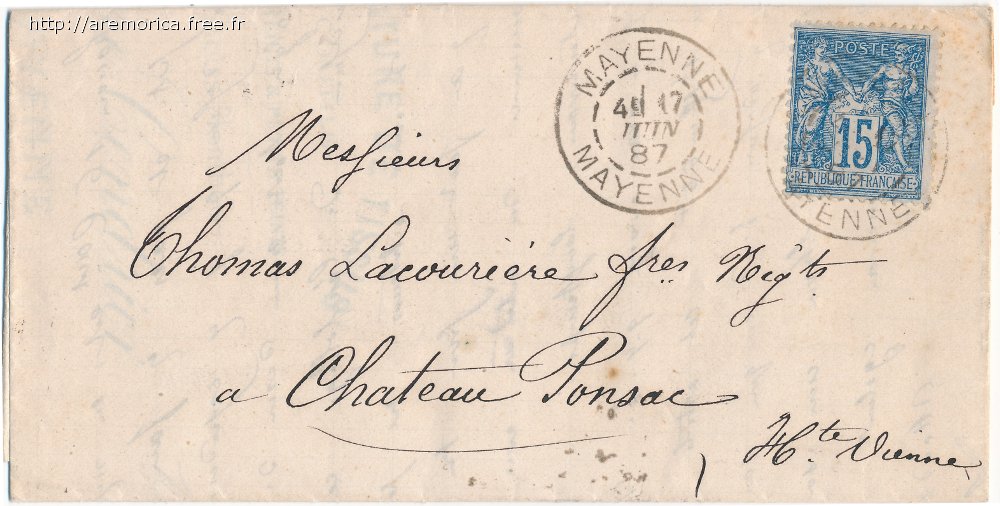 http://aremorica.free.fr
MAYENNE
4E 17
JUIN
87
MAYENNE
POSTE
15
REPUBLIQUE FRANÇAISE
YENNE
Messieurs
Thomas Lacourière fres Négts
a Chateau Ponsac
Hte Vienne